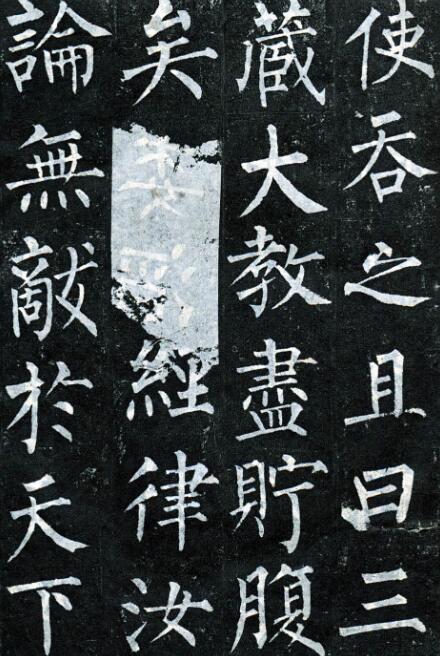 使吞之且曰三
藏大教盡貯腹
矣經律汝
論無敵於天下